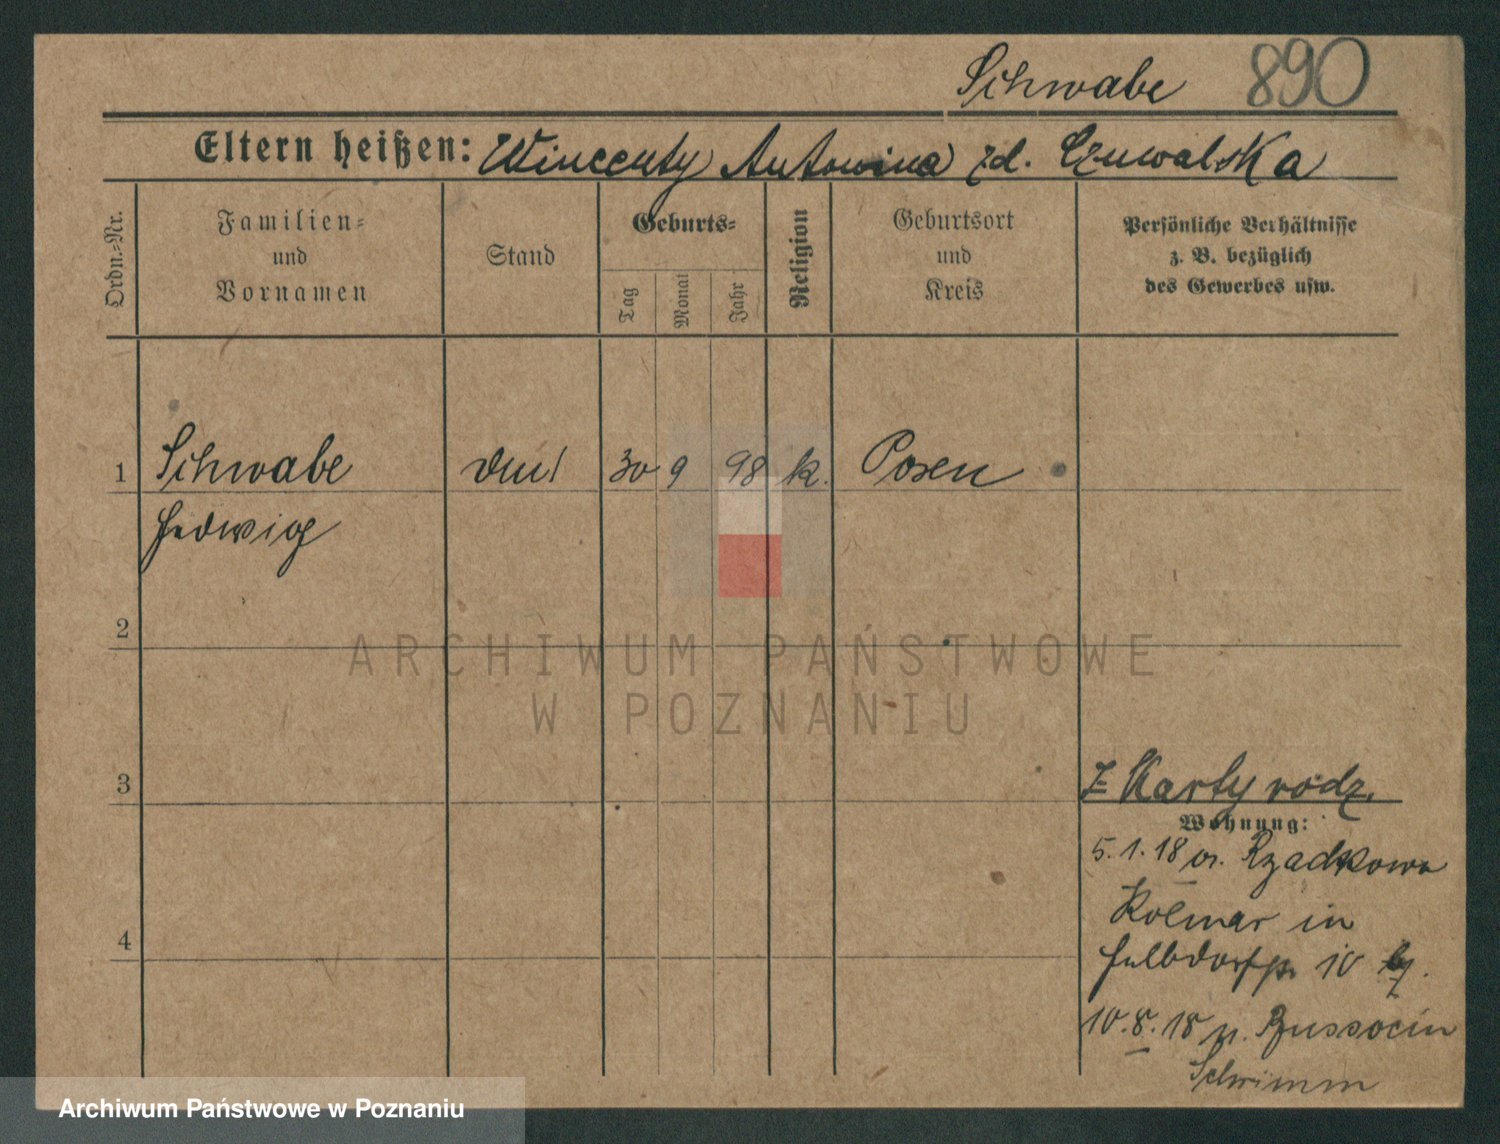 Schwabe 890
Eltern heißen: Wincenty Antonina zd. Czuwalska
Ordn.-Nr.
Familien-
und
Vornamen
Stand
Geburts-
Tag
Monat
Jahr
Religion
Geburtsort
und
Kreis
Persönliche Verhältnisse
z. B. bezüglich
des Gewerbes usw.
1 Schwabe 30 9 98 k. Posen
Hedwig
2
3
Z Karty rodz.
Wohnung:
5.1.18 Rzadkowo
Kolmar in
10
4
10.8.18 n. Brussocin
Schrimm
ARCHIWUM PAŃSTWOWE
W POZNANIU
Archiwum Państwowe w Poznaniu